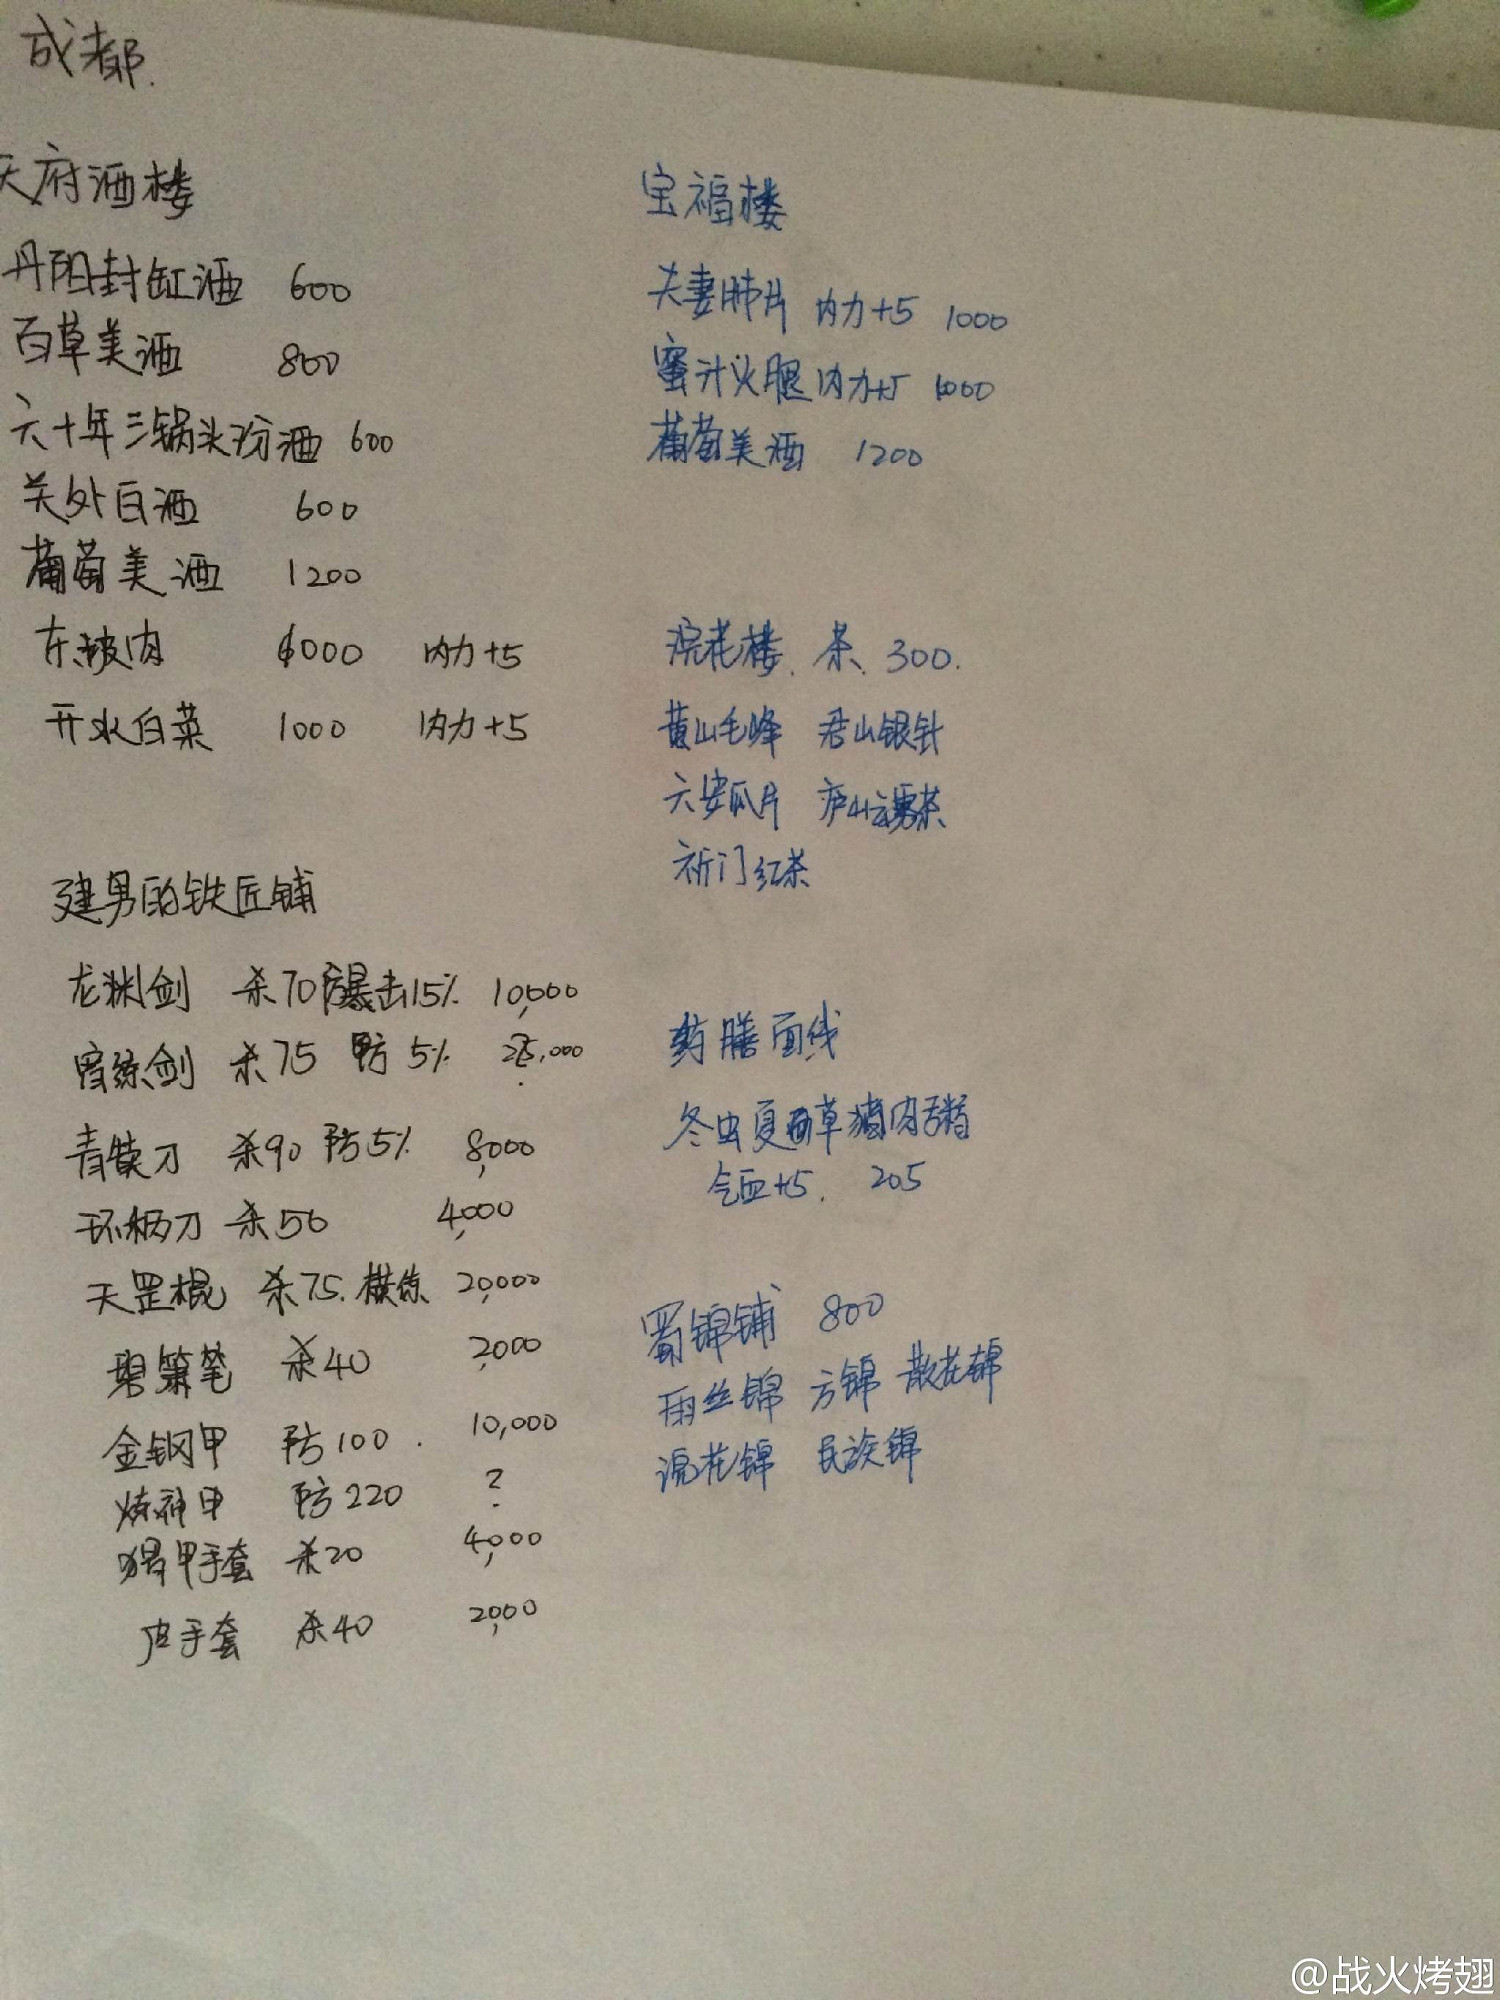 成都.
天府酒楼
丹阳封缸酒 600
百草美酒 800
六十年三锅头汾酒 600
关外白酒 600
葡萄美酒 1200
东坡肉 1000 内力+5
开水白菜 1000 内力+5
建男的铁匠铺
龙渊剑 杀70 暴击15% 10,000
剑 杀75 防5% 25,000
青犊刀 杀90 防5% 8,000
环柄刀 杀50 4,000
天罡棍 杀75. 横练 20,000
笔 杀40 2,000
金钢甲 防100. 10,000
炼神甲 防220 ?
猬甲手套 杀20 4,000
皮手套 杀40 2,000
宝福楼
夫妻肺片 内力+5 1000
蜜汁火腿 内力+5 1000
葡萄美酒 1200
浣花楼. 茶. 300.
黄山毛峰 君山银针
六安瓜片 庐山云雾茶
祁门红茶
药膳面线
冬虫夏草猪肉粥
气血+5. 205
蜀锦铺 800
雨丝锦 方锦 散花锦
浣花锦 民族锦
@战火烤翅